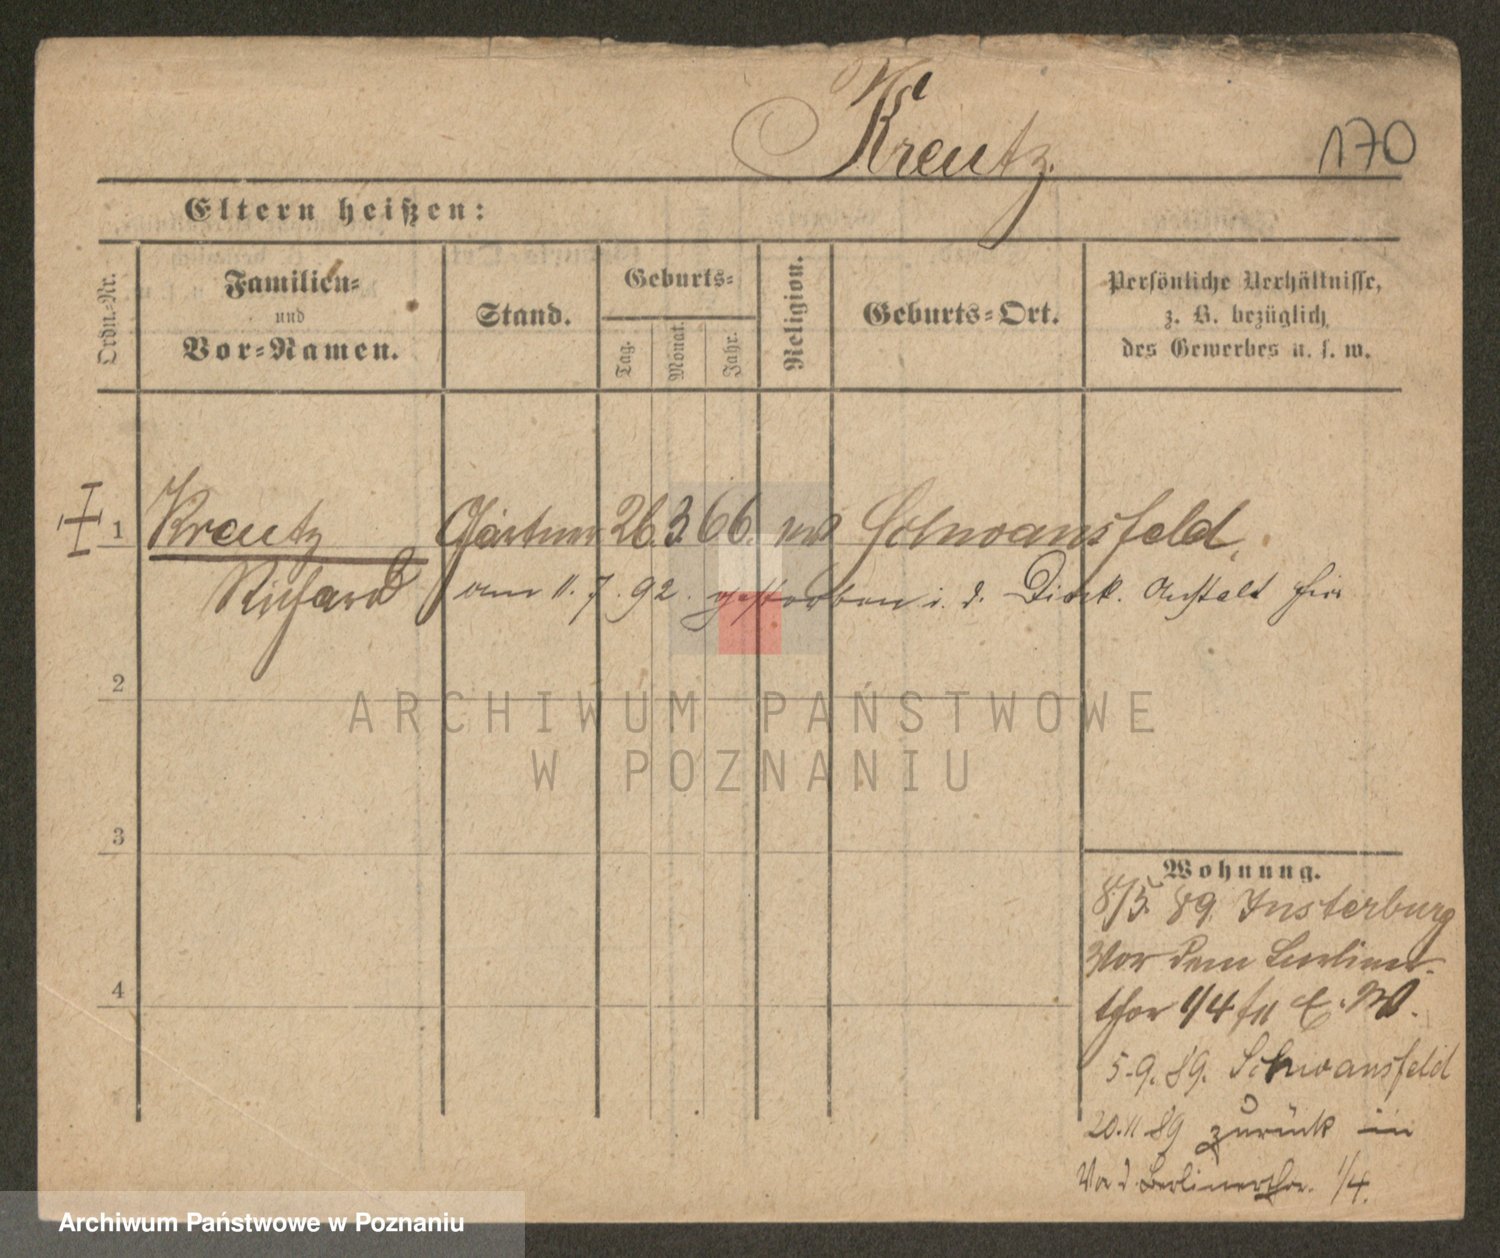 Kreutz.
170
Eltern heißen:
Ordn.-Nr.
Familien-
und
Vor-Namen.
Stand.
Geburts-
Tag.
Monat.
Jahr.
Religion.
Geburts-Ort.
Persönliche Verhältnisse,
z. B. bezüglich
des Gewerbes u. s. w.
1 Kreutz Gärtner 26. 3. 66. Schwansfeld.
Richard am 11. 7. 92. gestorben i. d. Diack. Anstalt hier
2
ARCHIWUM PAŃSTWOWE
W POZNANIU
3
4
Wohnung.
8/5. 89. Insterburg
Vor dem Berliner-
thor 1/4 E. W.
5.9.89. Schwansfeld
20.11 89 zurück in
Vor d. Berlinerthor. 1/4.
Archiwum Państwowe w Poznaniu